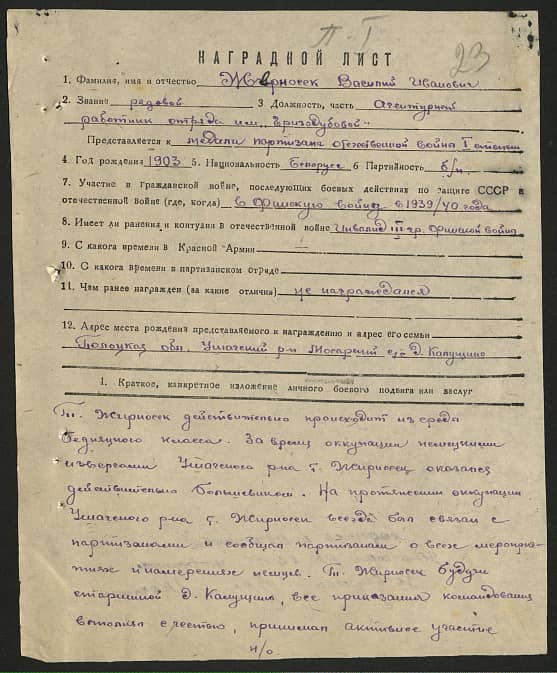 П-I
23
НАГРАДНОЙ ЛИСТ
1. Фамилия, имя и отчество Жерносек Василий Иванович
2. Звание рядовой 3. Должность, часть Агентурный
работник отряда им. „Гризодубовой“
Представляется к медали партизана отечественной война I степени
4. Год рождения 1903 5. Национальность Белорусс 6 Партийность б/п
7. Участие в Гражданской войне, последующих боевых действиях по защите СССР и
отечественной войне (где, когда) в Финскую войну в 1939/40 года
8. Имеет ли ранения и контузии в отечественной войне Инвалид III гр. Финской война
9. С какога времени в Красной Армии
10. С какога времени в партизанском отряде
11. Чем ранее награжден (за какие отличия) не награждался
12. Адрес места рождения представляемого к награждению и адрес его семьи
Полоцкая обл. Ушачский р-н Мосарский с/с д. Капущино
1. Краткое, канкретное изложение личного боевого подвига или заслуг
Т. Жирносек действительно происходит из среда
бедняцкого класса. За время оккупации немецкими
извергами Ушачского р-на т. Жирносек оказался
действительно большевиком. На протяжении оккупации
Ушачского р-на т. Жирносек всегда был связан с
партизанами и сообщал партизанам о всех мероприя-
тиях и намерениях немцев. Т. Жирносек будучи
старшиной д. Капущино, все приказания командования
выполнял с честью, принимал активное участие
н/о.